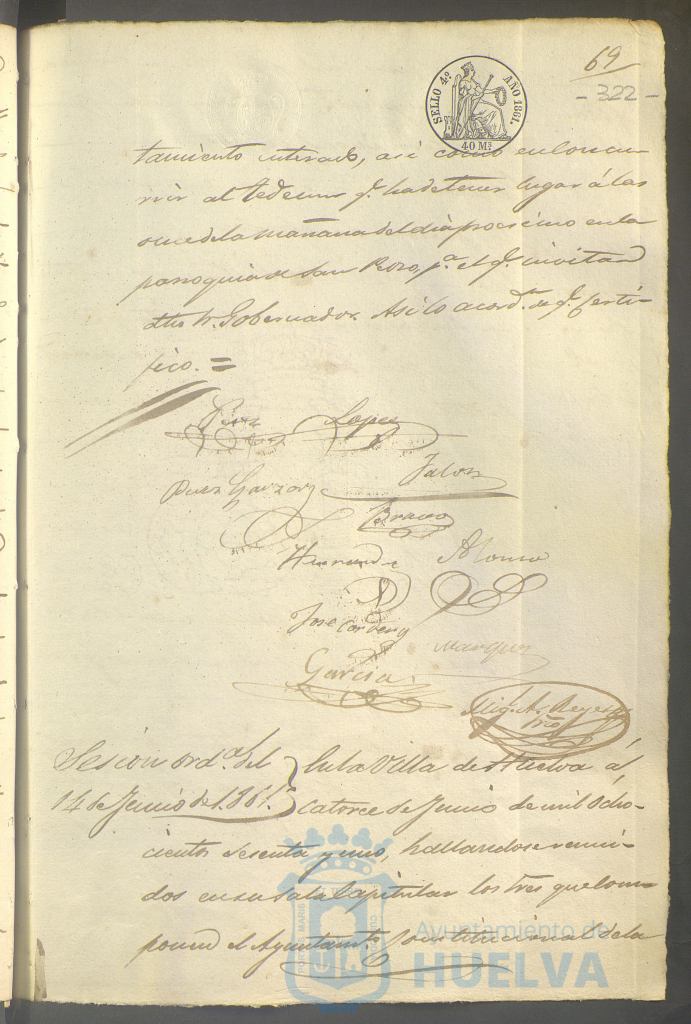 69
- 322 -
SELLO 4.º AÑO 1861.
40 Ms
tamiento interado, asi como en concur
rir al Tedeum q.e ha de tener lugar á las
once de la mañana del dia procsimo en la
parroquia de San Pedro, p.a el q.e invitan
dho Sr. Gobernador. Asi lo acord.n de q.e certi-
fico. =
Lopez
Garzon Jalon
Bravo
Hernandz Alonso
Jose Cordero
Marquez
Garcia
Mig.l A. Reyes
Srio
Sesion ord.a del
14 de Junio de 1861.
En la Villa de Huelva á
catorce de Junio de mil ocho-
cientos sesenta y uno, hallandose reuni-
dos en su Sala Capitular los Sres que com
ponen el Ayuntam.to Constitucional de la
Ayuntamiento de
HUELVA